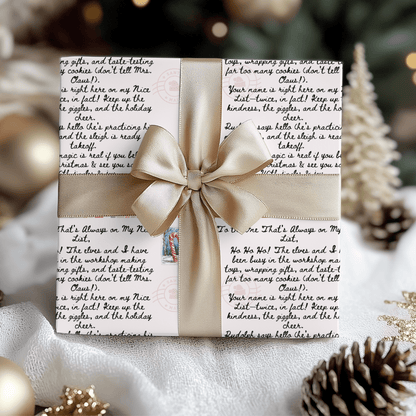 ing gifts, and taste-testing
many cookies (don't tell Mrs.
Claus!).
is right here on my Nice
in fact! Keep up the
the giggles, and the holiday
cheer.
says hello (he's practicing h
and the sleigh is ready
takeoff.
magic is real if you be
Christmas & see you s
toys, wrapping gifts, and taste-te
far too many cookies (don't tell
Claus!).
Your name is right here on my
List—twice, in fact! Keep up
kindness, the giggles, and the hol
cheer.
Rudolph says hello (he's practicing h
and the sleigh is read
takeoff.
magic is real if you b
Christmas & see you
One That's Always on My Nice
List,
Ho! The elves and I have
in the workshop making
ing gifts, and taste-testing
many cookies (don't tell Mrs.
Claus!).
is right here on my Nice
in fact! Keep up the
the giggles, and the holiday
cheer.
says hello (he's practicing his
One That's Always on My N
List,
Ho Ho Ho! The elves and I
been busy in the workshop ma
toys, wrapping gifts, and taste-t
far too many cookies (don't tel
Claus!).
Your name is right here on my
List—twice, in fact! Keep up
kindness, the giggles, and the hol
cheer.
Rudolph says hello (he's practicing